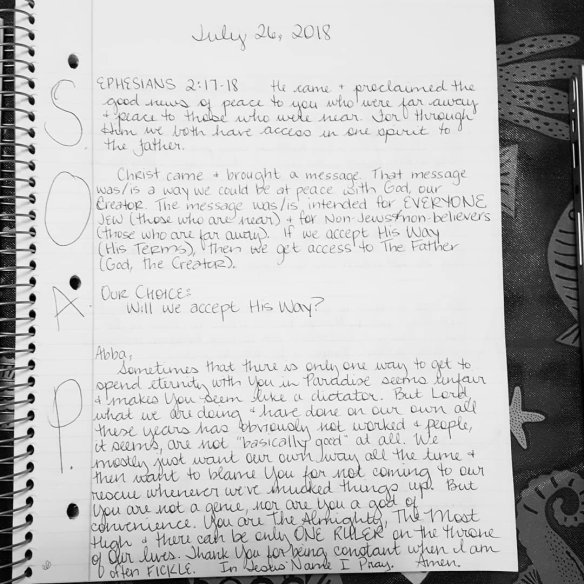 July 26, 2018
S.
EPHESIANS 2:17-18 He came + proclaimed the
good news of peace to you who were far away
+ peace to those who were near. For through
Him we both have access in one spirit to
the father.
O.
Christ came + brought a message. That message
was/is a way we could be at peace with God, our
Creator. The message was/is intended for EVERYONE
Jew (those who are near) + for Non-Jews/non-believers
(those who are far away). If we accept His Way
(His Terms), then we get access to The Father
(God, The Creator).
A.
OUR CHOICE:
Will we accept His Way?
P.
Abba,
Sometimes that there is only one way to get to
spend eternity with You in Paradise seems unfair
+ makes You seem like a dictator. But Lord,
what we are doing + have done on our own all
these years has obviously not worked + people,
it seems, are not "basically good" at all. We
mostly just want our own way all the time +
then want to blame You for not coming to our
rescue whenever we've mucked things up! But
You are not a genie, nor are You a god of
convenience. You are The Almighty, The Most
High + there can be only ONE RULER on the throne
of our lives. Thank You for being constant when I am
often FICKLE. In Jesus' Name I Pray. Amen.